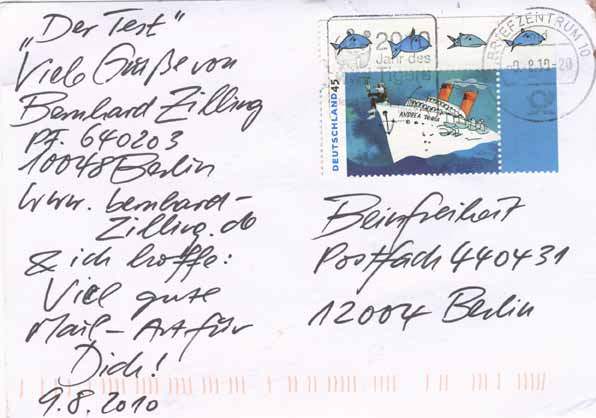 „Der Test"
Viele Grüße von
Bernhard Zilling
PF. 640203
10048 Berlin
www.bernhard-
Zilling.de
& ich hoffe:
Viel gute
Mail-Art für
Dich!
9.8.2010
2010
Jahr des
Tigers
BRIEFZENTRUM 10
-9.8.10-20
DEUTSCHLAND 45
ANDREA DORIA
Beinfreiheit
Postfach 440431
12004 Berlin